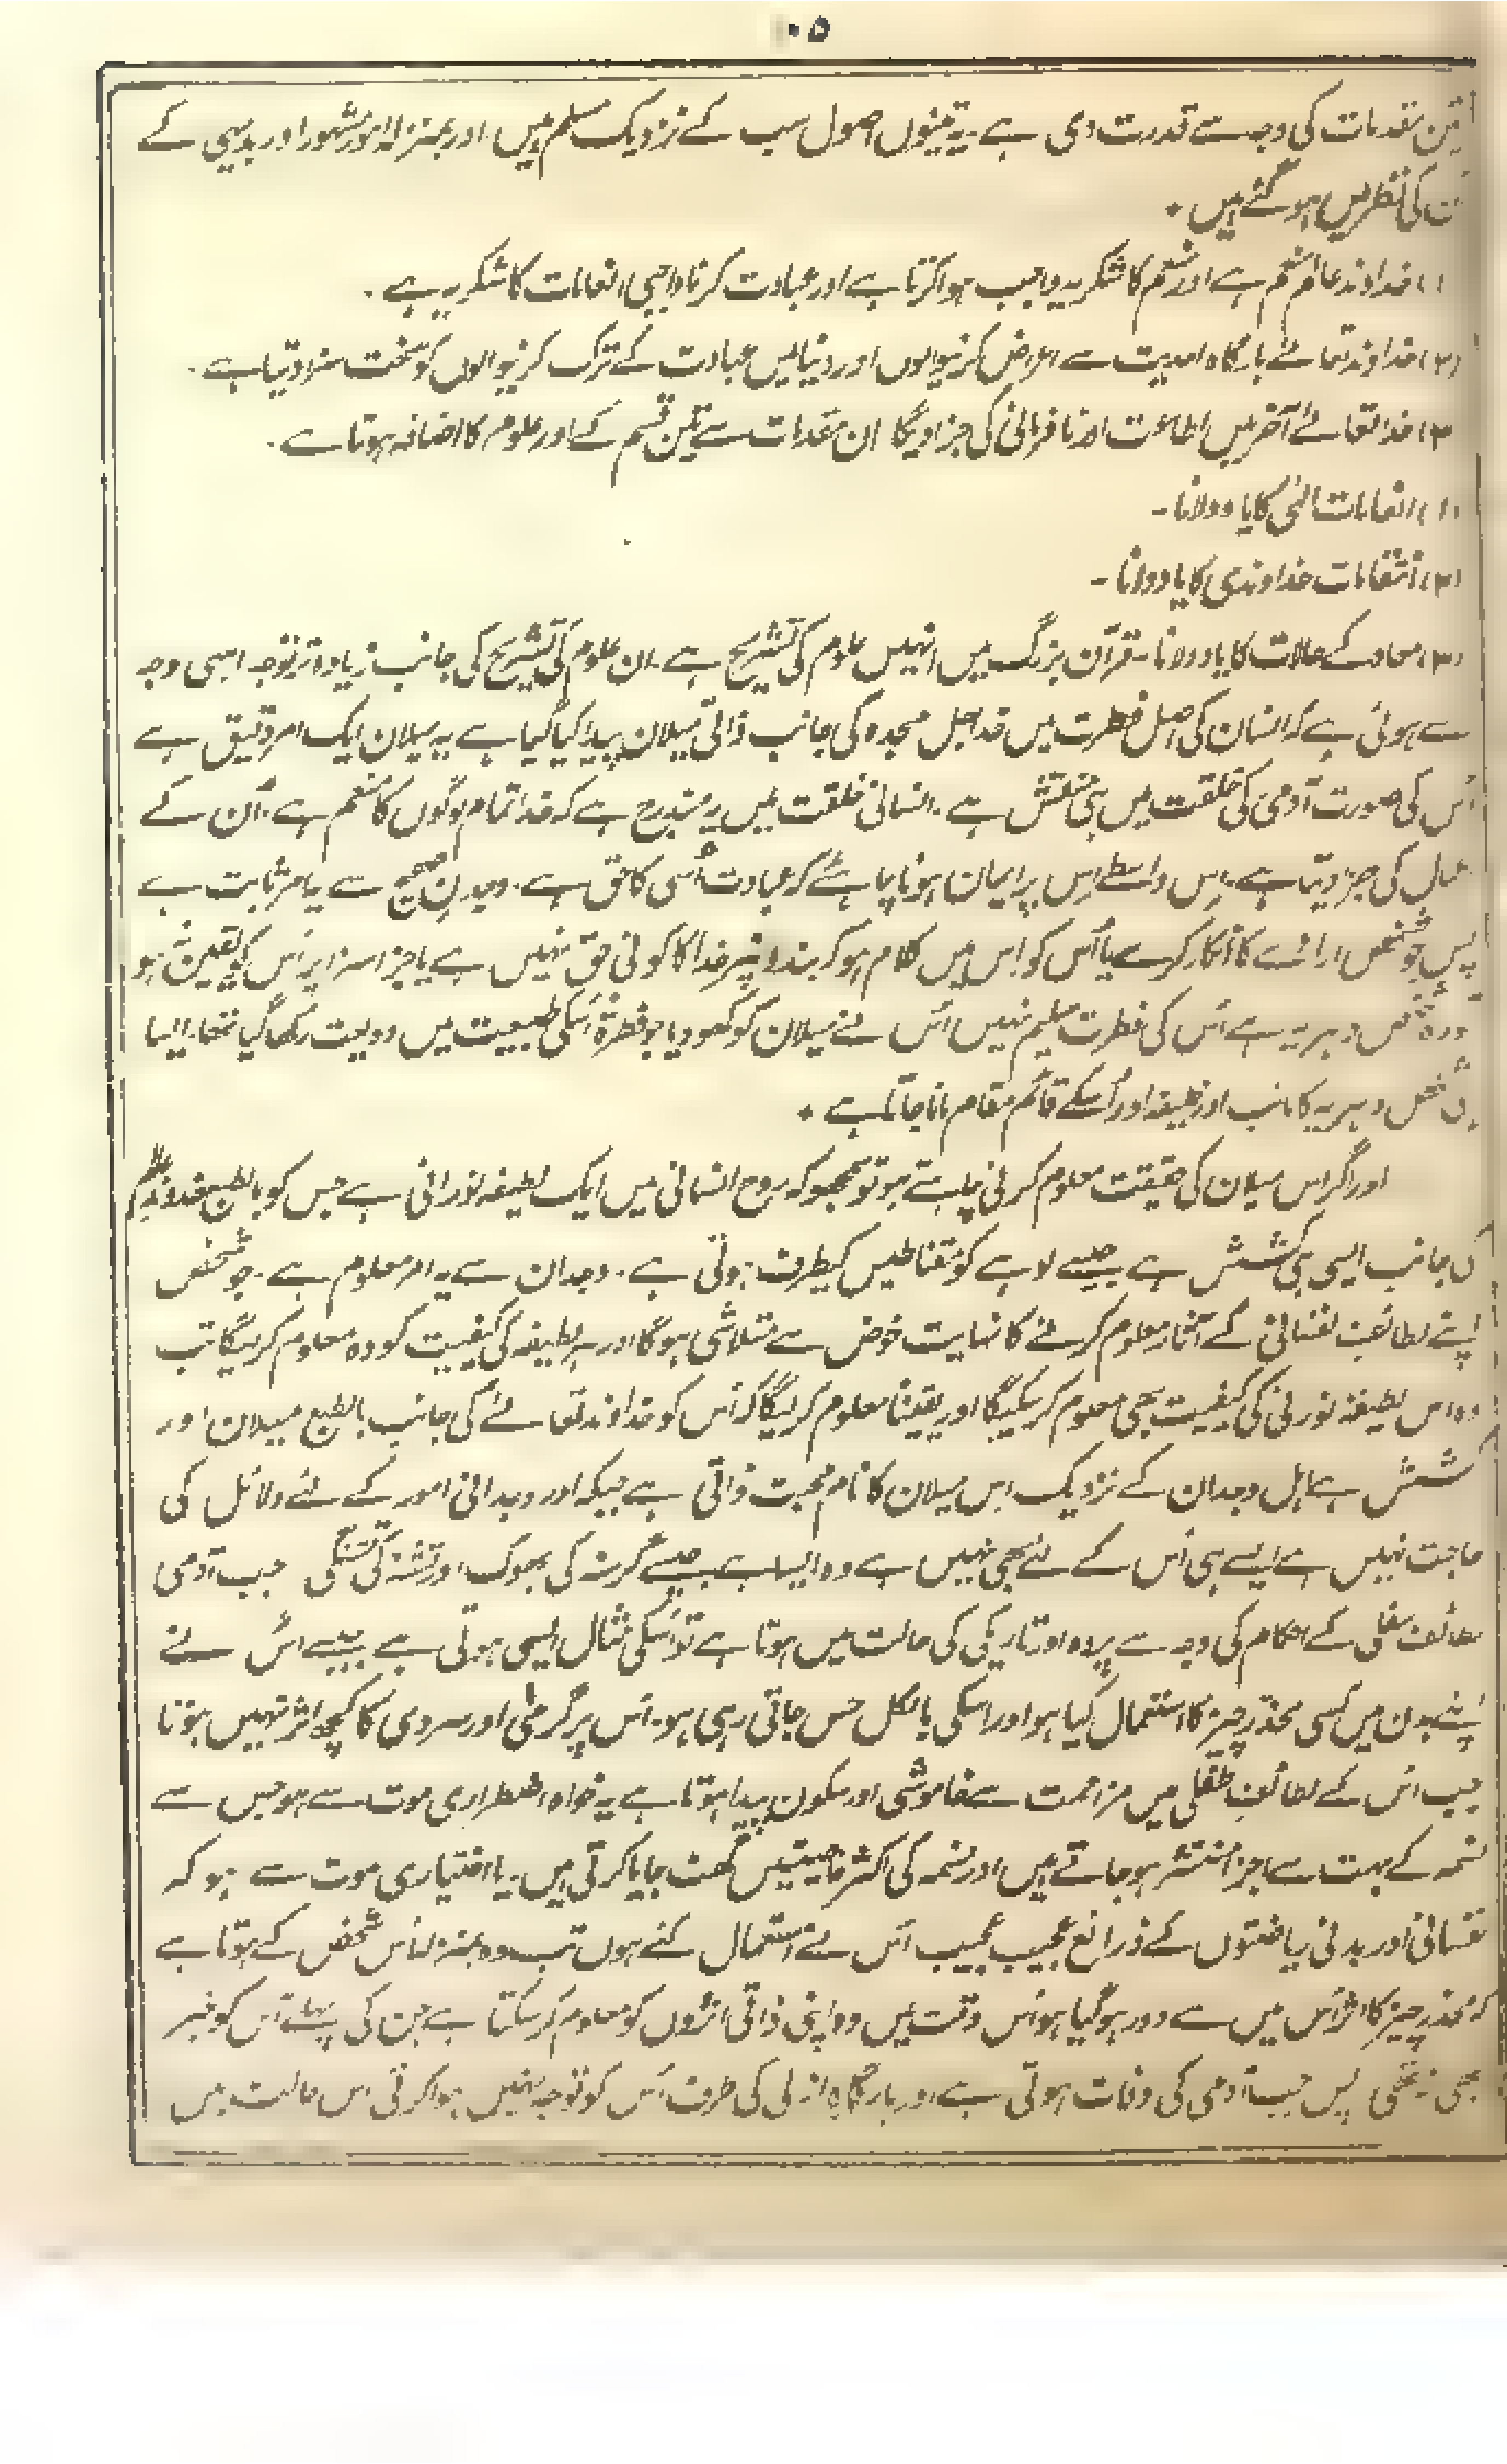 ۱۰۵
تین مقدمات کی وجہ سے قدرت دی ہے۔ یہ تینوں اصول سب کے نزدیک مسلم ہیں۔ اور بمنزلہ امور مشہور اور بدیہی کے
ان کی نظر میں ہو گئے ہیں ٭
(۱) خداوند عالم منعم ہے اور منعم کا شکریہ واجب ہوا کرتا ہے اور عبادت کرنا واجبی انعامات کا شکریہ ہے۔
(۲) خداوند تعالےٰ بارگاہ احدیت سے اعراض کرنیوالوں اور دنیا میں عبادت کے ترک کرنیوالوں کو سخت سزا دیتا ہے۔
(۳) خدا تعالےٰ آخر میں اطاعت اور نافرمانی کی جزا دیگا ان مقدمات سے تین قسم کے اور علوم کا اضافہ ہوتا ہے۔
(۱) انعامات الٰہی کا یاد دولانا۔
(۲) انتقامات خداوندی کا یاد دولانا۔
(۳) معاد کے حالات کا یاد دولانا۔ قرآن بزرگ میں انہیں علوم کی تشریح ہے۔ ان علوم کی تشریح کی جانب زیادہ تر توجہ اسی وجہ
سے ہوئی ہے کہ انسان کی اصل فطرت میں خدا جل مجدہ کی جانب ذاتی میلان پیدا کیا گیا ہے یہ میلان ایک امر دقیق ہے
اس کی صورت آدمی کی خلقت میں ہی منقش ہے۔ انسانی خلقت میں یہ مندرج ہے کہ خدا تمام لوگوں کا منعم ہے۔ اُن کے
اعمال کی جزا دیتا ہے۔ اِس واسطے اِس پر ایمان ہونا چاہئے کہ عبادت اُسی کا حق ہے۔ وجدانِ صحیح سے یہ امر ثابت ہے
پس جو شخص ارادے کا انکار کرے یا اُس کو اِس میں کلام ہو کہ بندوں پر خدا کا کوئی حق نہیں ہے یا جزا سزا پر اُس کو یقین نہ ہو
تو وہ شخص دہریہ ہے اُس کی فطرت سلیم نہیں اُس نے میلان کو کھو دیا جو فطرۃً اُسکی طبیعت میں ودیعت رکھا گیا تھا۔ ایسا
ہی شخص دہریہ کا نائب اور خلیفہ اور اُسکے قائم مقام مانا جاتا ہے ٭
اور اگر اس میلان کی حقیقت معلوم کرنی چاہتے ہو تو سمجھو کہ روح انسانی میں ایک لطیفہ نورانی ہے جس کو بالطبع خداوند عالم
کی جانب ایسی ہی کشش ہے جیسے لوہے کو مقناطیس کیطرف ہوتی ہے۔ وجدان سے یہ امر معلوم ہے۔ جو شخص
اپنے لطائف نفسانی کے آثار معلوم کرنے کا نہایت خوض سے متلاشی ہوگا اور ہر لطیفہ کی کیفیت کو وہ معلوم کرلیگا تب
وہ اس لطیفۂ نورانی کی کیفیت بھی معلوم کر سکیگا اور یقیناً معلوم کرلیگا کہ اُس کو خداوند تعالےٰ کی جانب بالطبع میلان اور
کشش ہے اہل وجدان کے نزدیک اِس میلان کا نام محبت ذاتی ہے جیسکہ اور وجدانی امور کے لئے دلائل کی
حاجت نہیں ہے ایسے ہی اُس کے لئے بھی نہیں ہے وہ ایسا ہے جیسے گرسنہ کی بھوک اور تشنہ کی تشنگی جب آدمی
لطائف سفلی کے احکام کی وجہ سے پردہ اور تاریکی کی حالت میں ہوتا ہے تو اُسکی مثال ایسی ہوتی ہے جیسے اُس نے
اپنے بدن میں کسی مخدّر چیز کا استعمال کیا ہو اور اسکی بالکل حس جاتی رہی ہو۔ اُس پر گرمی اور سردی کا کچھ اثر نہیں ہوتا
جب اُس کے لطائف سفلی میں مزاحمت سے خاموشی اور سکون پیدا ہوتا ہے یہ خواہ اضطراری موت سے ہو جس سے
نسمہ کے بہت سے اجزا منتشر ہو جاتے ہیں اور نسمہ کی اکثر خاصیتیں گھٹ جایا کرتی ہیں۔ یا اختیاری موت سے ہو کہ
نفسانی اور بدنی ریاضتوں کے ذرائع عجیب عجیب اُس نے استعمال کئے ہوں تب وہ بمنزلہ اُس شخص کے ہوتا ہے
کہ مخدر چیز کا اثر اُس میں سے دور ہوگیا ہو اُس وقت میں وہ اپنی ذاتی اثروں کو معلوم کرسکتا ہے جن کی پہلے اُس کو خبر
بھی نہ تھی پس جب آدمی کی وفات ہوتی ہے اور بارگاہ ازلی کی طرف اُس کو توجہ نہیں ہوا کرتی اس حالت میں